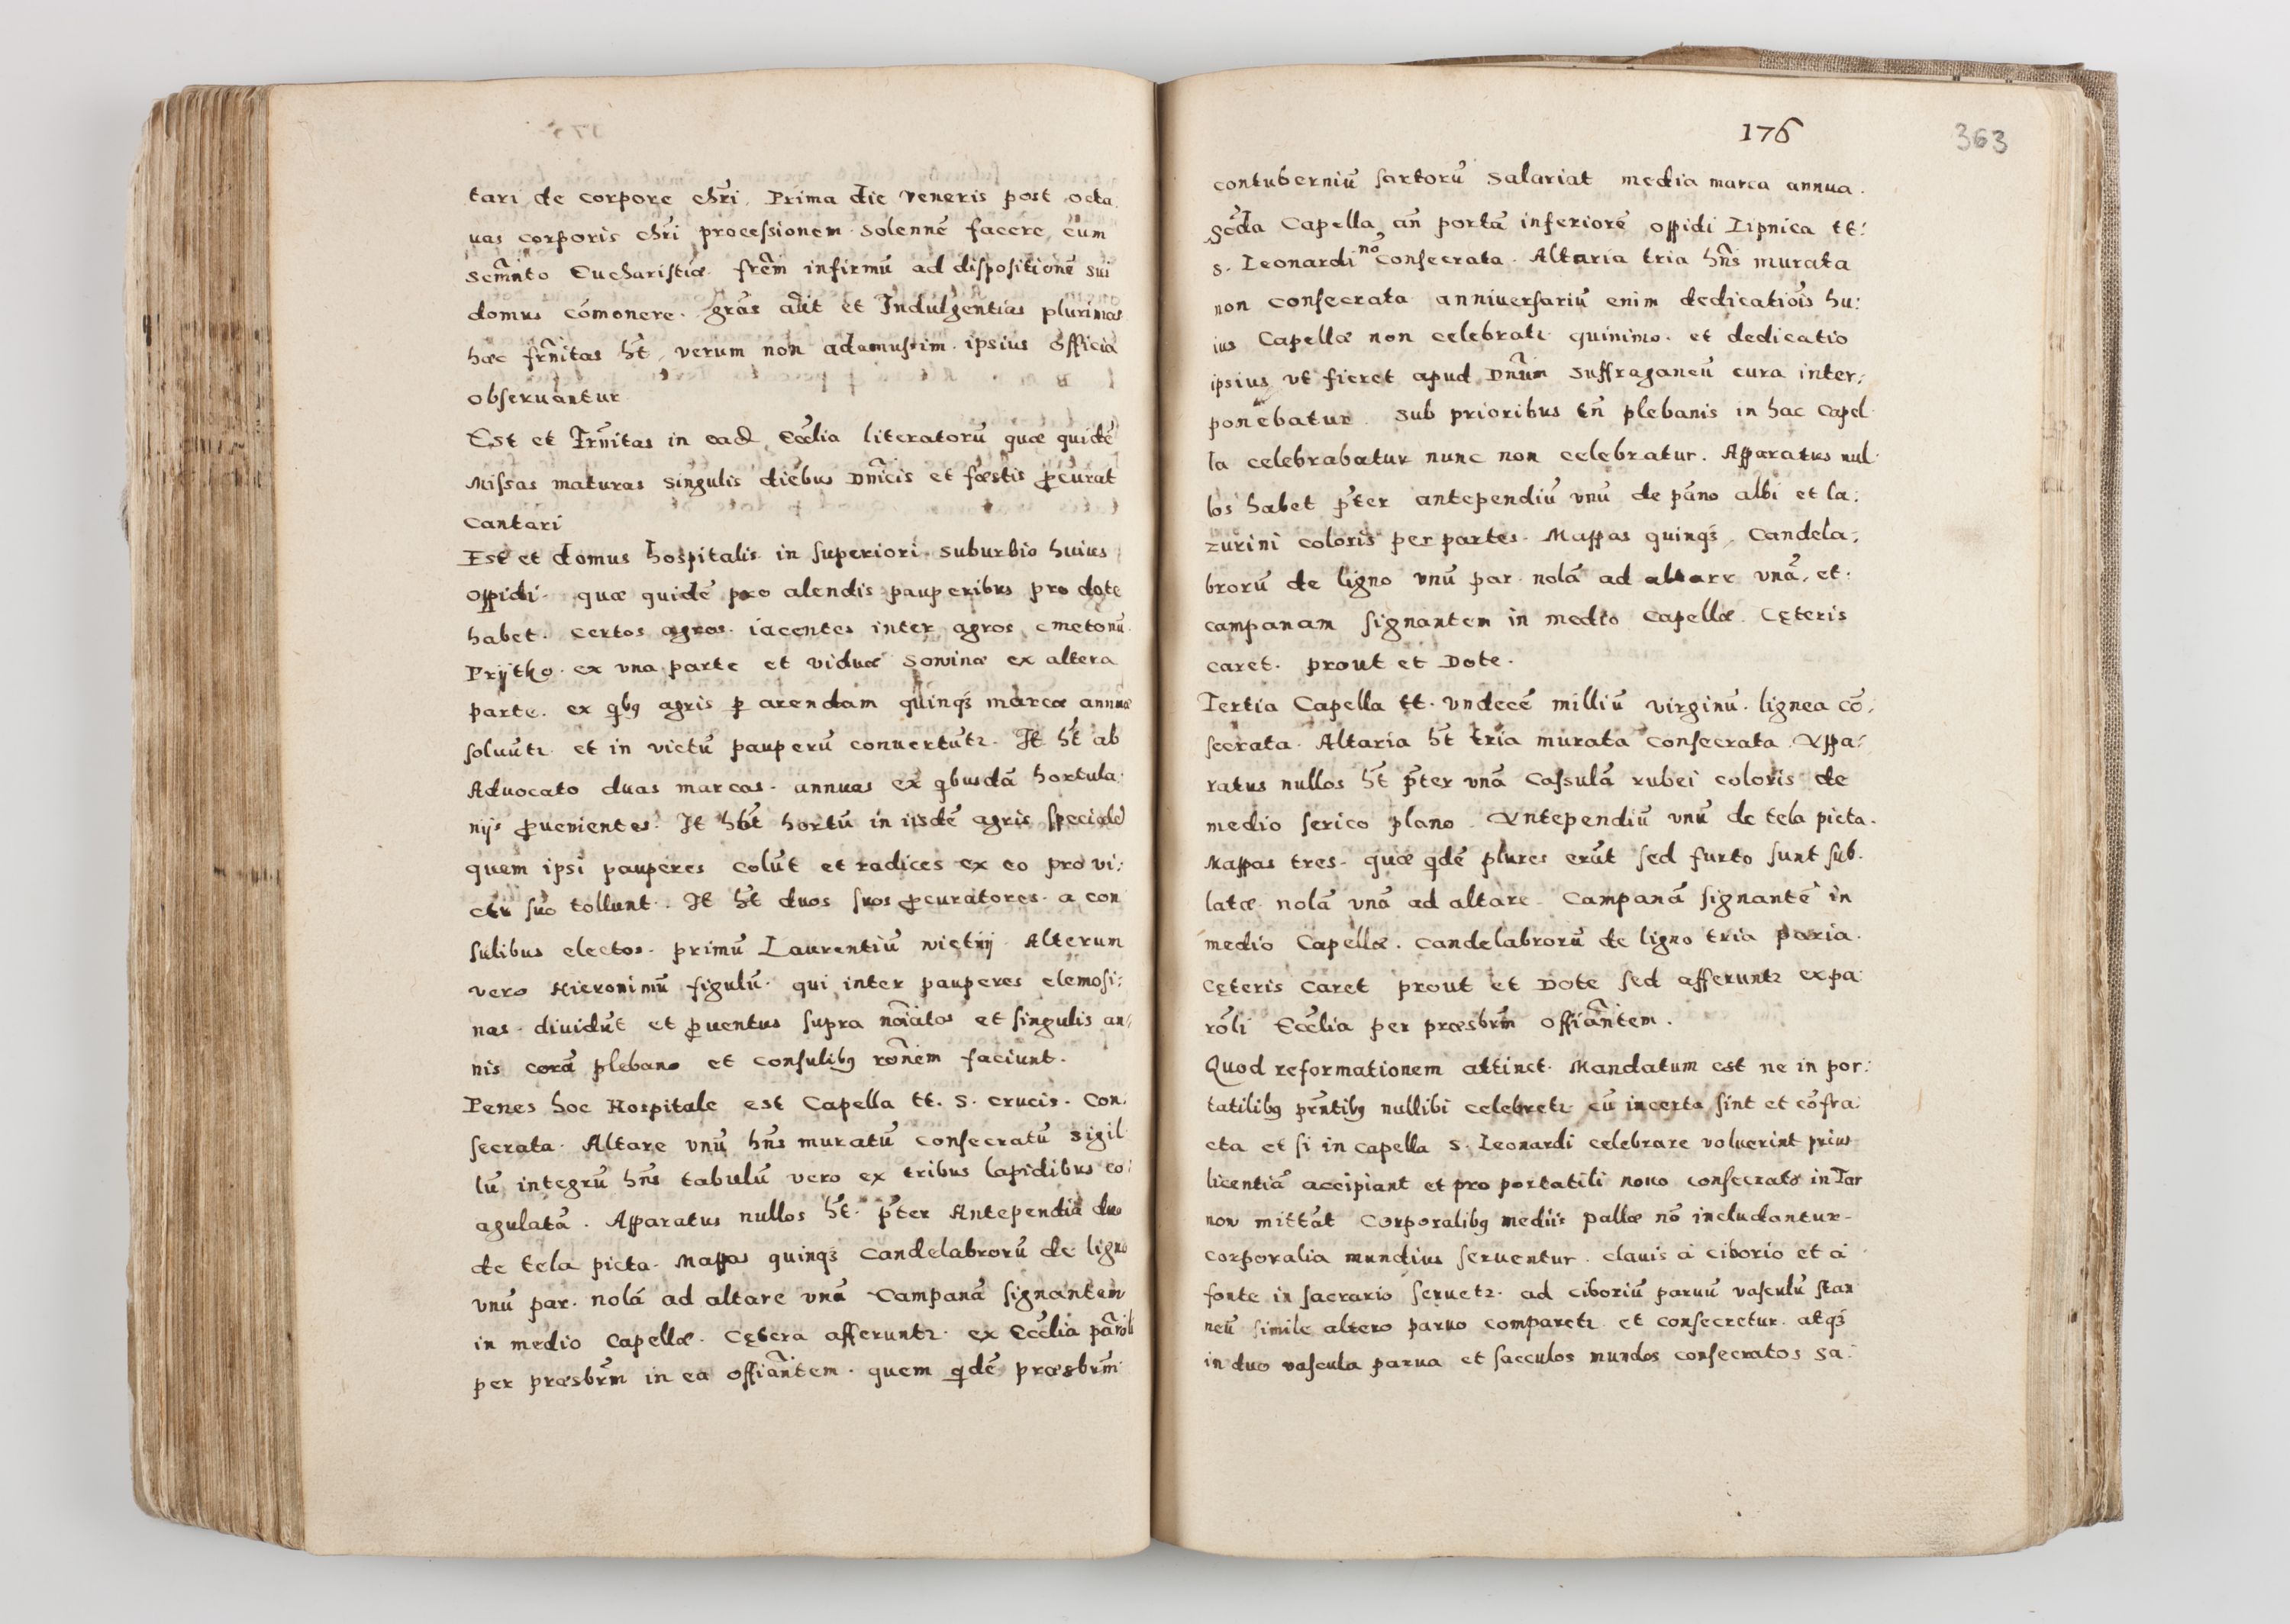 tari de corpore chr̃i. Prima die veneris post octa
uas corporis chr̃i processionem solennẽ facere, cum
Scr̃mnto Eucharistiæ frẽm infirmũ ad dispositionẽ sui
domus cõmonere. grãs aũt et Indulgentias plurimas
hæc frñitas ht̃, verum non adamussim ipsius officia
obseruantur
Est et Frñitas in ead Eccl̃ia literatorũ quæ quidẽ
Missas maturas singulis diebus Dñicis et fæstis ꝓcurat
cantari
Est et domus hospitalis in superiori suburbio huius
oppidi. quæ quidẽ pro alendis pauperibus pro dote
habet. certos agros. iacentes inter agros cmetonũ.
Prÿtko. ex vna parte et viduæ Sowinæ ex altera
parte. ex qbꝰ agris ꝑ arendam quinqꝫ marcæ annuæ
soluũtr. et in victũ pauperũ conuertũtr. It̃ ht̃ ab
Aduocato duas marcas. annuas ex qbusdã hortula
nijs ꝓuenientes. It̃ hb̃t hortũ in iisdẽ agris speciałẽ
quem ipsi pauperes colũt et radices ex eo pro vi:
ctu suo tollunt. It̃ ht̃ duos suos ꝓcuratores. a con
sulibus electos. primũ Laurentiũ więtnÿ. Alterum
vero Hieronimũ figulũ. qui inter pauperes elemosi:
nas. diuidũt et ꝓuentus supra nõiatos et singulis an:
nis corã plebano et consulibꝰ rõnem faciunt.
Penes hoc Hospitale est Capella tt. S. crucis. Con:
secrata. Altare vnũ hñs muratũ consecratũ sigil
lũ integrũ hñs tabulũ vero ex tribus lapidibus co:
agulatã. Apparatus nullos ht̃. p̃ter Antependia duo
de tela picta. Mappas quinqꝫ candelabrorũ de ligno
vnũ par. nolã ad altare vnã Campanã signantem
in medio Capellæ. Cętera afferuntr. ex Eccl̃ia parõli
per præsbrm̃ in ea offiãntem. quem qdẽ præsbrm̃
176
363
contuberniũ sartorũ salariat media marca annua.
Scd̃a Capella añ portã inferiorẽ oppidi Lipnica tt:
S. Leonardi no consecrata. Altaria tria hñs murata
non consecrata anniuersariũ enim dedicatiõis hu:
ius Capellæ non celebratr. quinimo. et dedicatio
ipsius vt fieret apud Dñum suffraganeũ cura inter:
ponebatur. sub prioribus tñ plebanis in hac Capel
la celebrabatur nunc non celebratur. Apparatus nul
los habet p̃ter antependiũ vnũ de pãno albi et la:
zurini coloris per partes. Mappas quinqꝫ. Candela:
brorũ de ligno vnũ par. nolã ad altare vnã, et:
campanam signantem in medio Capellæ. Cęteris
caret. prout et Dote.
Tertia Capella tt. vndecẽ milliũ virginũ. lignea cõ:
secrata. Altaria ht̃ tria murata consecrata. Appa:
ratus nullos ht̃ p̃ter vnã Cassulã rubei coloris de
medio serico plano. Antependiũ vnũ de tela picta.
Mappas tres. quæ qdẽ plures erũt sed furto sunt sub.
latæ. nolã vnã ad altare. Campanã signantẽ in
medio Capellæ. candelabrorũ de ligno tria paria.
Cęteris caret prout et Dote sed afferuntr ex pa
rõli Eccl̃ia per præsbrm̃ offiãntem.
Quod reformationem attinet. Mandatum est ne in por:
tatilibꝰ pr̃ntibꝰ nullibi celebretr cũ incerta sint et cõfra:
cta et si in capella S. Leonardi celebrare voluerint prius
licentiã accipiant et pro portatili nouo consecrato in Tar
now mittãt Corporalibꝰ mediis pallæ nõ includantur.
corporalia mundius seruentur. clauis à ciborio et à
fonte in sacrario seruetr. ad ciboriũ paruũ vasculũ stan
neũ simile altero paruo comparetr. et consecretur. atqꝫ
in duo vascula parua et sacculos mundos consecratos sa: